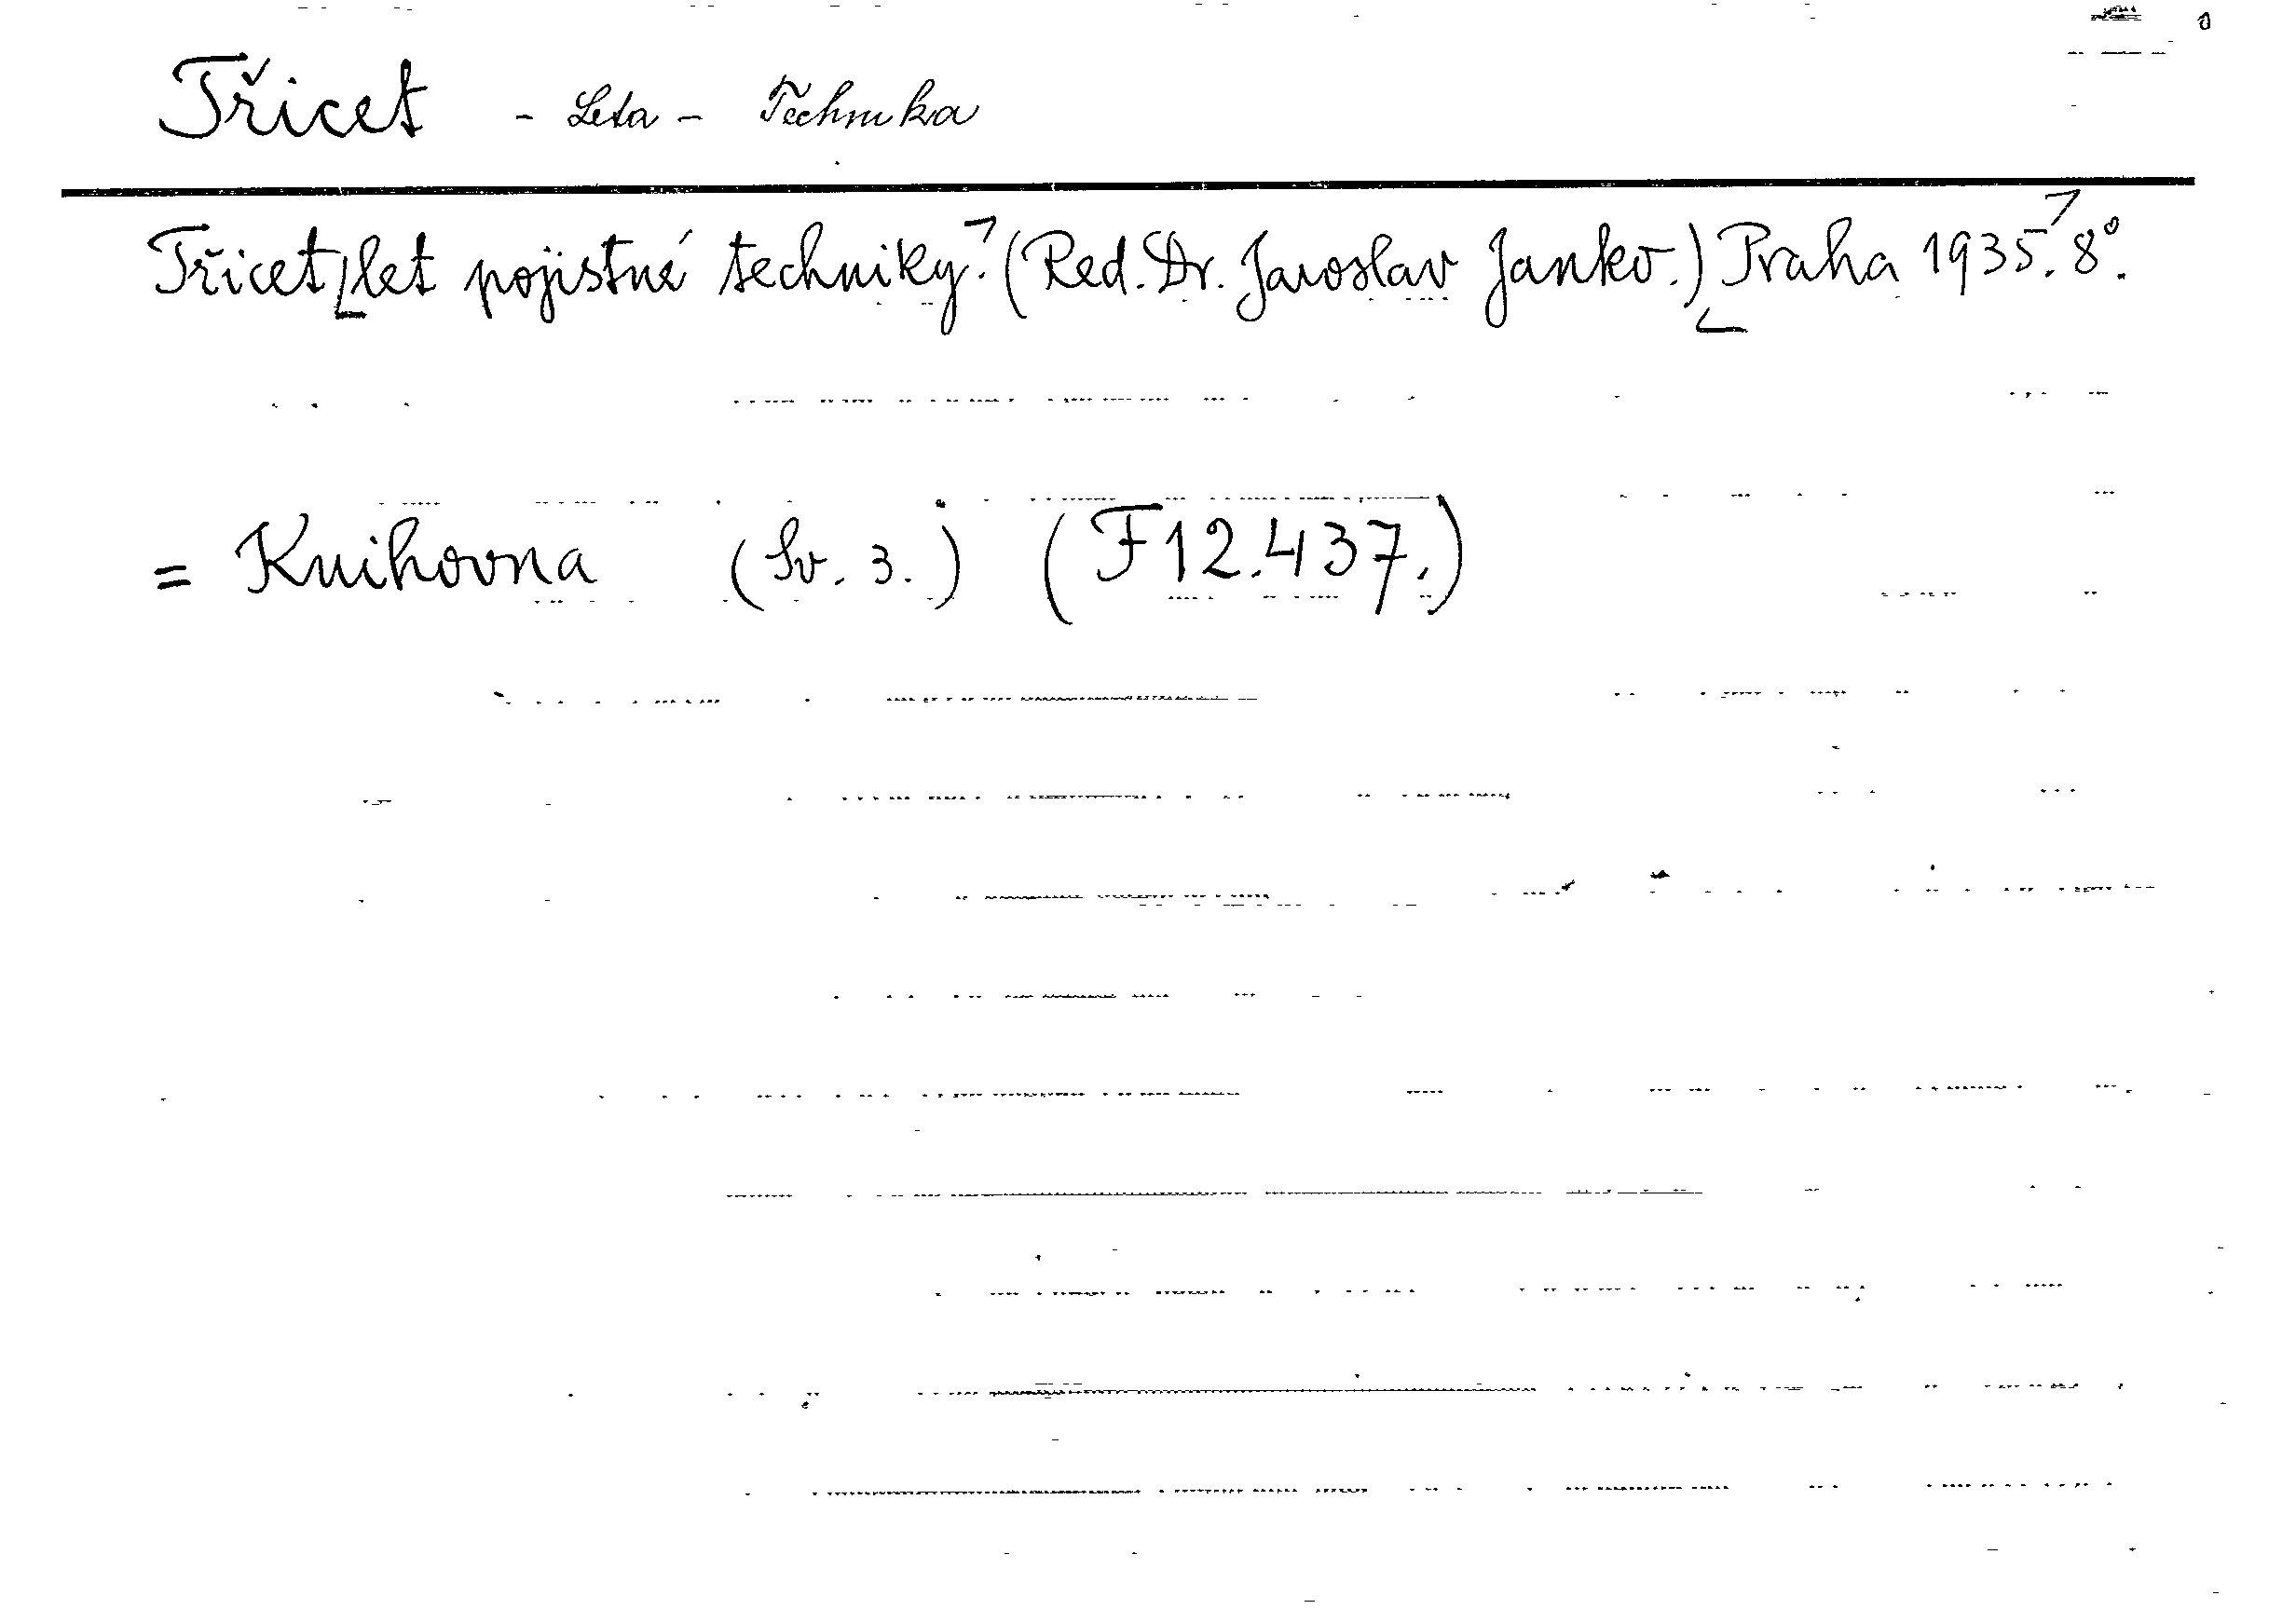 Třicet - Leta - Technika
Třicet let pojistné techniky. (Red. Dr. Jaroslav Janko.) Praha 1935. 8°.
= Knihovna (Sv. 3.) (F 12.437.)